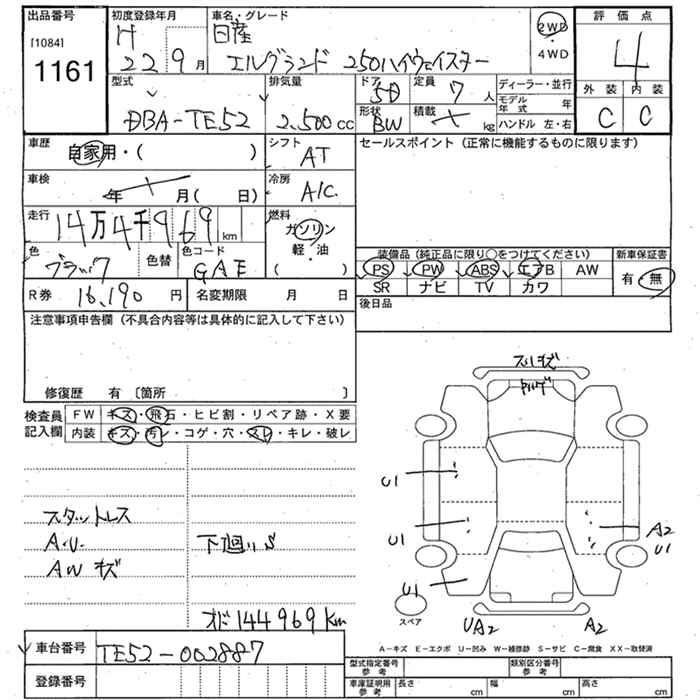 出品番号 初度登録年月 車名・グレード 2WD 評価点
[1084] H 日産 ・
1161 22 9月 エルグランド 250ハイウェイスター 4WD 4
型式 排気量 ドア 定員 ディーラー・並行 外装 内装
DBA-TE52 2.500cc 5D 7人 モデル年式 年 C C
形状 積載 ハンドル 左・右
BW kg
車歴 シフト セールスポイント (正常に機能するものに限ります)
自家用・( ) AT
車検 冷房
年 月( 日) A/C
走行 燃料
14万4千969km ガソリン
軽・油
色 色替 色コード ( )
ブラック GAE
装備品 (純正品に限り○をつけてください) 新車保証書
PS PW ABS エアB AW 有・無
SR ナビ TV カワ
R券 16,190円 名変期限 月 日 後日品
注意事項申告欄 (不具合内容等は具体的に記入して下さい)
修復歴 有 〔箇所 〕
検査員 FW キズ・飛石・ヒビ割・リペア跡・X要
記入欄 内装 キズ・汚レ・コゲ・穴・スレ・キレ・破レ
スリキズ
U1
スタットレス
A・U・
AWキズ
下廻りS
U1
A2
U1
U1
オド144969km
スペア
UA2 A2
A-キズ E-エクボ U-凹み W-補修跡 S-サビ C-腐食 XX-取替済
車台番号 TE52-002887
登録番号
型式指定番号 参考 類別区分番号 参考
車庫証明用 参考 長さ cm 幅 cm 高さ cm